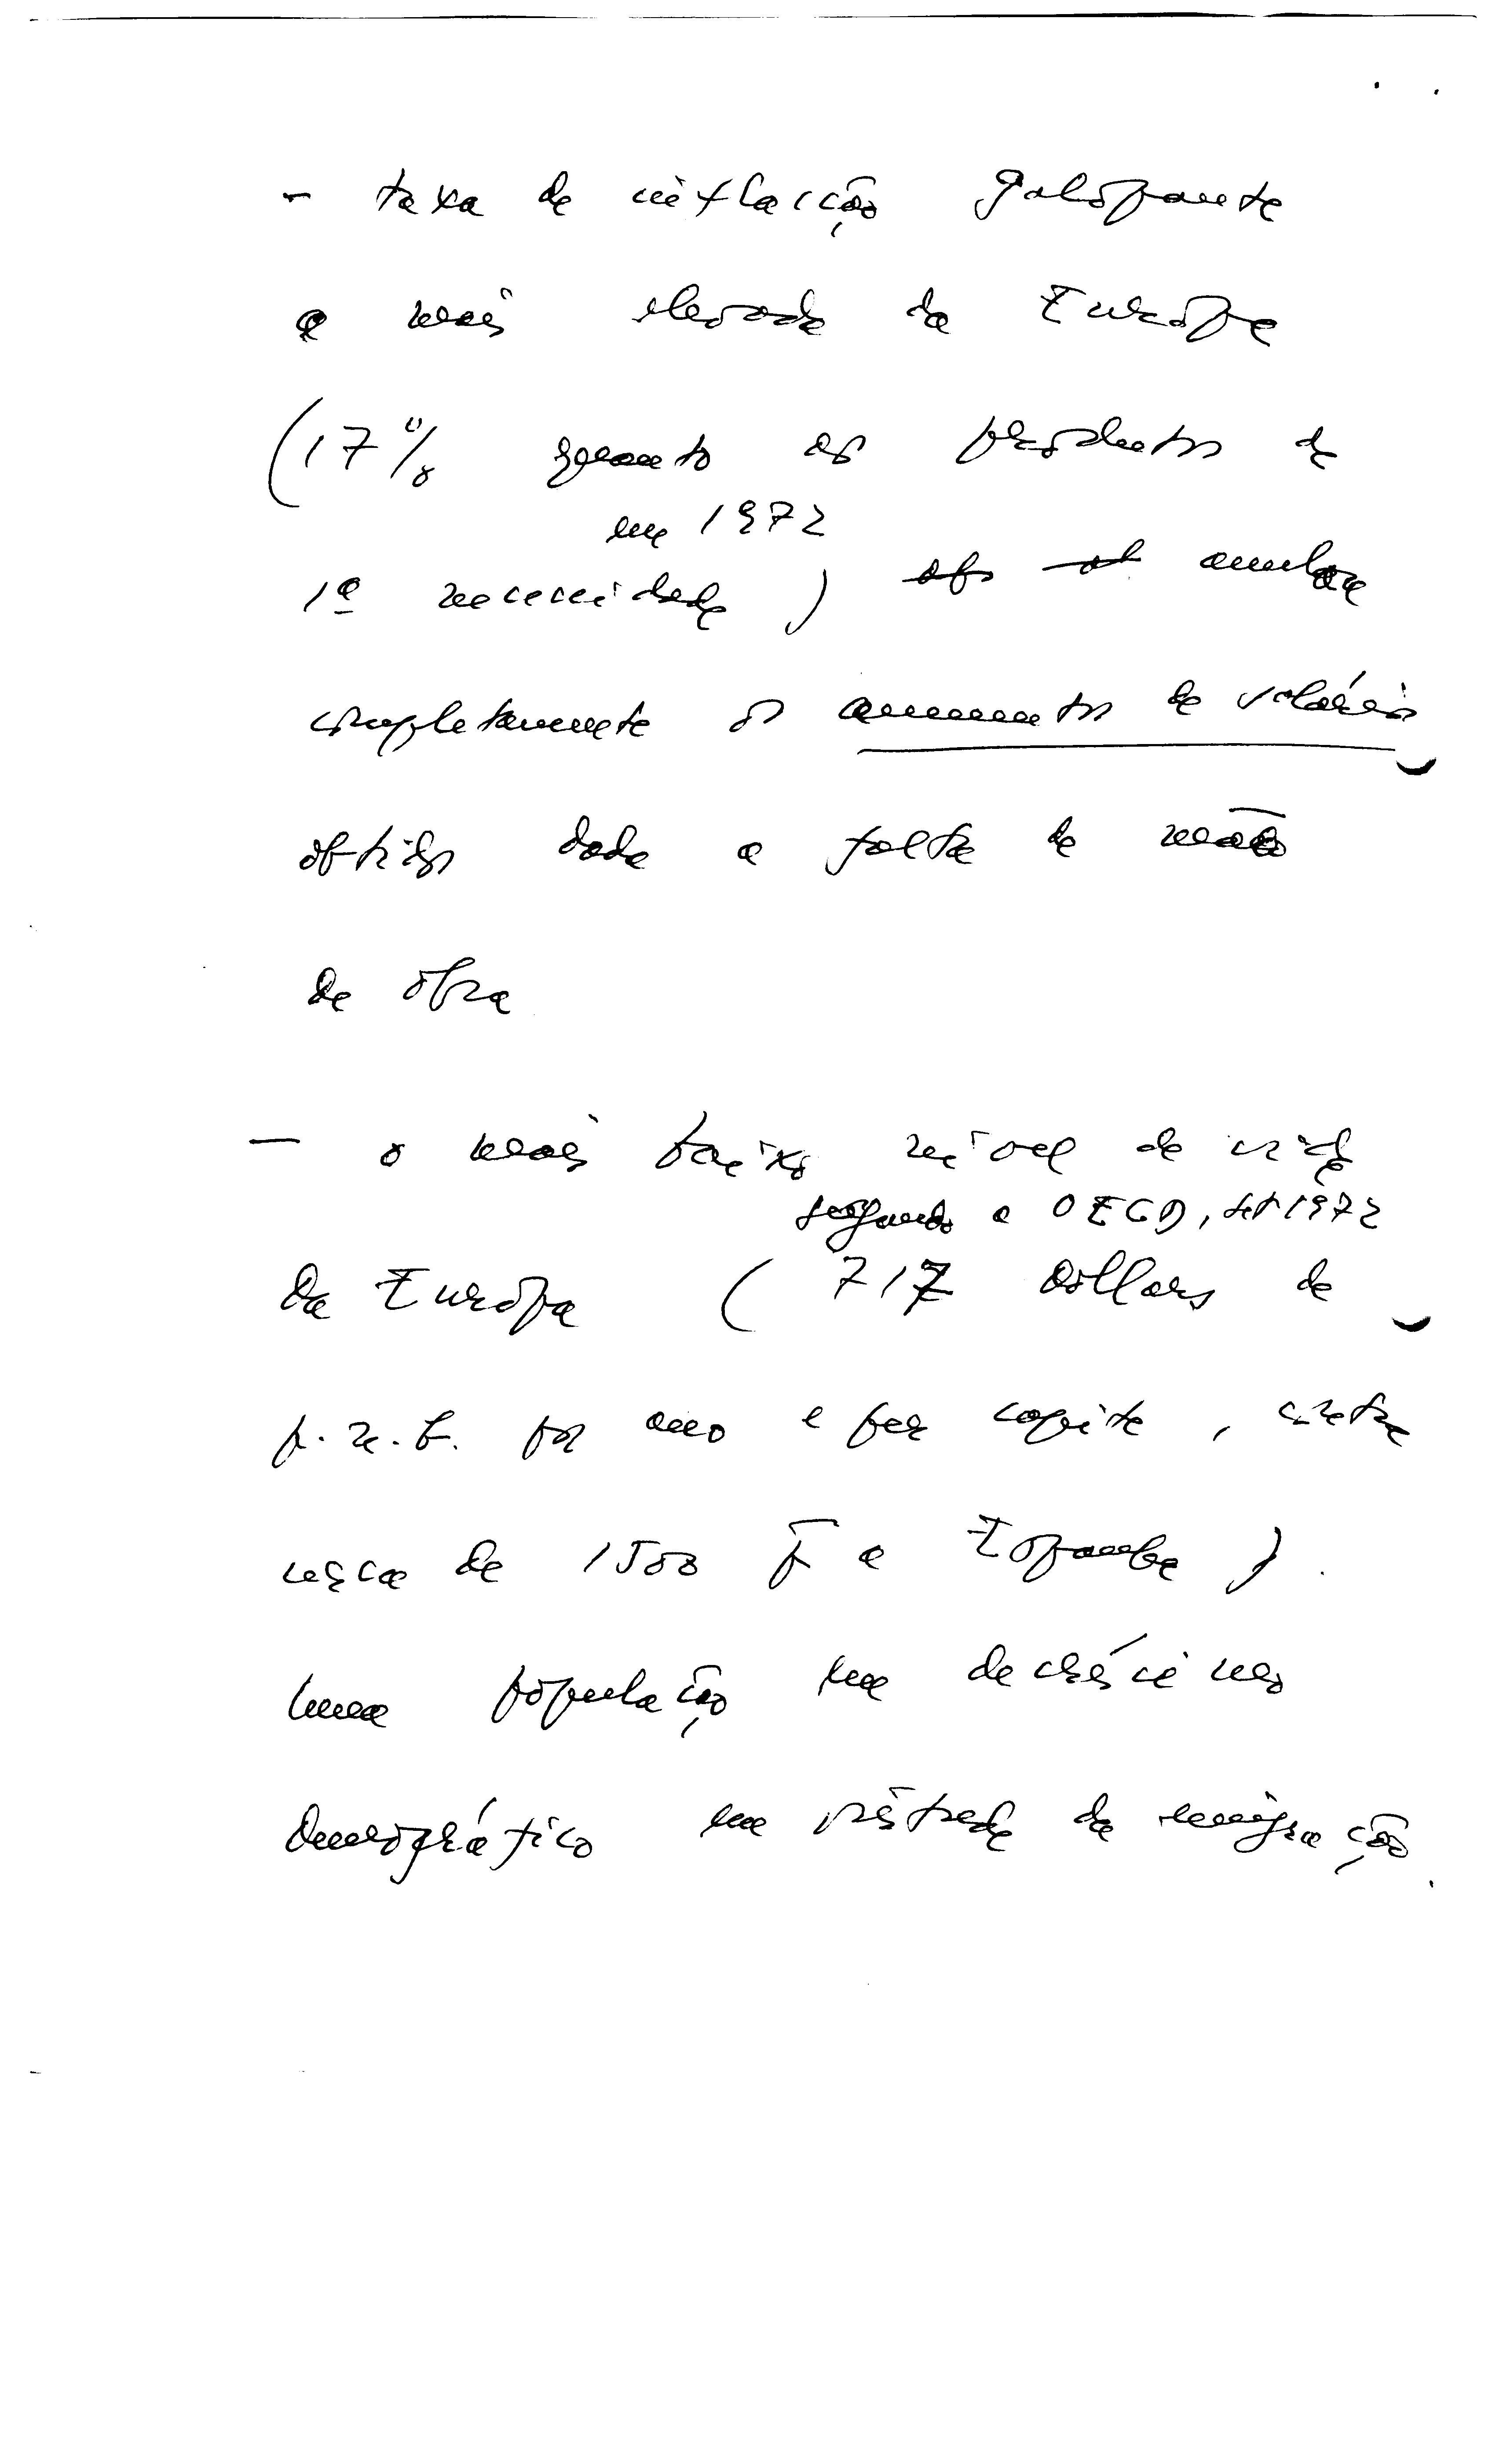 - taxa de inflacção galopante
a mais elevada da Europa
(17% quanto aos productos de
em 1972
1ª necessidade) anulou
completamente os aumentos de salários
obtidos dada a falta de mão
de obra
- o mais baixo nível de vida
segundo a OECD, set 1972
da Europa ( 717 dollars de
p.n.b. por ano e per capita, contra
cerca de 1500 pª a Espanha ).
uma população em decréscimo
demográfico em virtude da emigração.